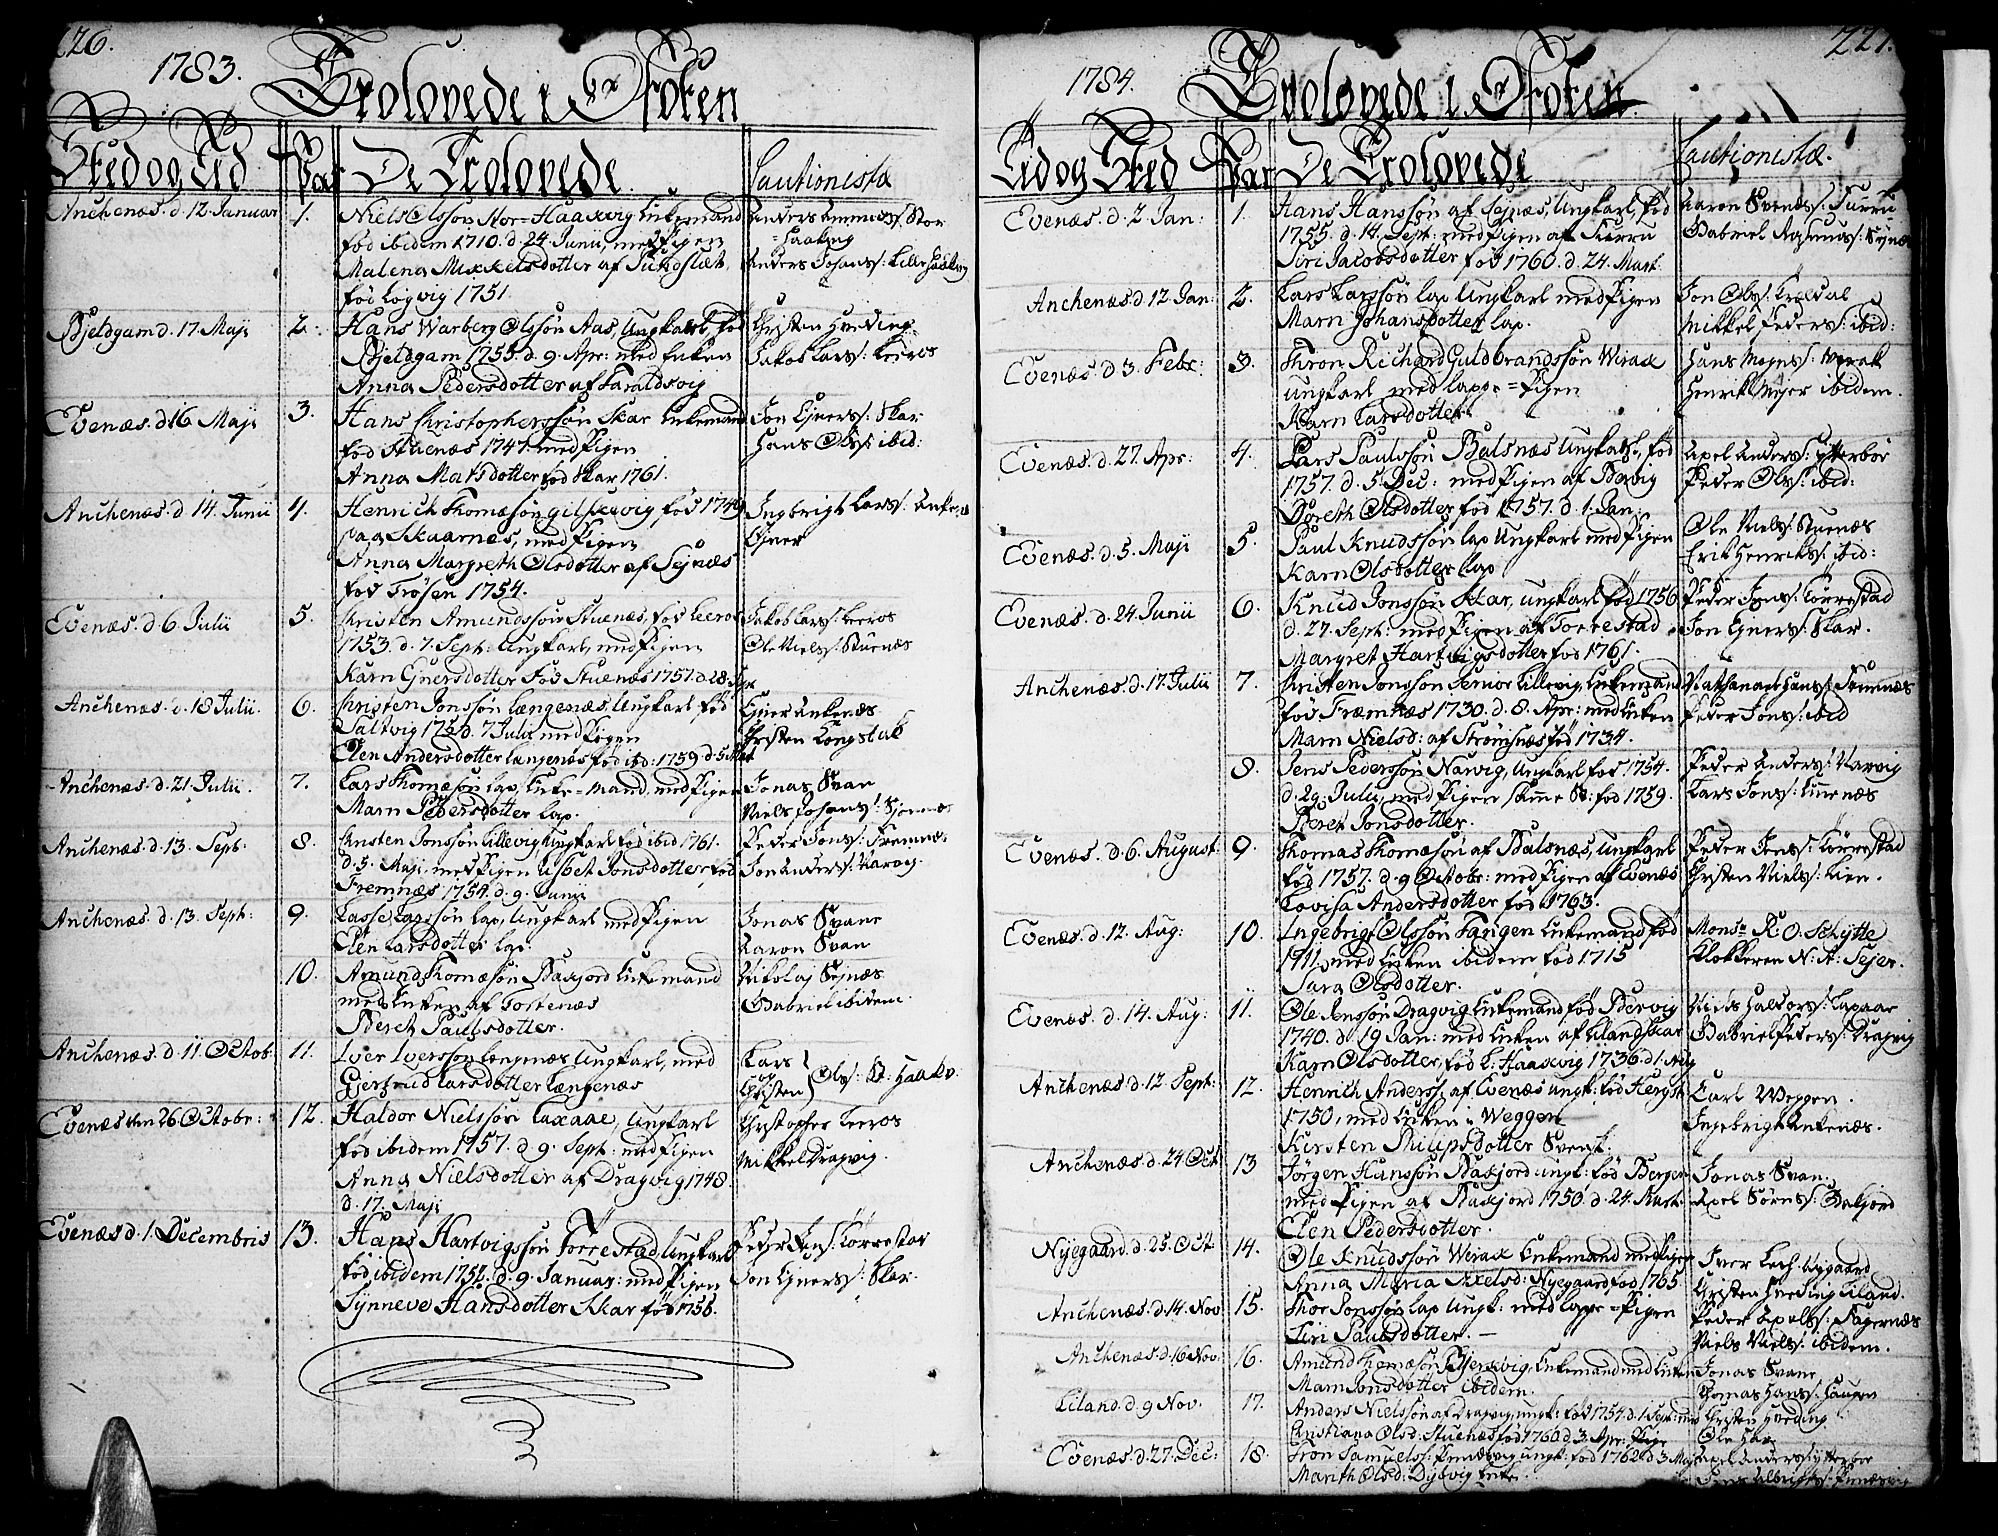 226.
1783.
Trolovede i Ofoten
Sted og Tid
Par
De Trolovede
Cautionista
Anchenæs. d. 12 Januar
1.
Niels Olssön Stor-Haaxvig Enkemand
fød ibidem 1710. d. 24. Junii, med Pigen
Malena Mixkelsdotter af Sundslæt,
fød Logvig 1751.
Anders Ammunds/: Stor
=Haakvig
Anders Johans/: Lille Haakvig
Bjeldgam d. 17. Maji
2.
Hans Warberg Olssön Aas, Ungkarl, fød
Bjeldgam 1755. d. 9. Apr: med Enken
Anna Pedersdotter af Haraldsvig
Christen Hveding.
Jakob Lars/: Leeros
Evenæs. d. 16 Maji
3.
Hans Christopherssön Skar Enkemand
fød Stuenæs 1747. med Pigen
Anna Matsdotter fød Skar 1761.
Jon Ejners/: Skar
Hans Ols/: ibid:
Anchenæs. d. 14. Junii
4.
Henrich Thomæsön Gilsvig fød 1749
paa Skaarnes, med Pigen
Anna Margreth Olsdotter af Sejnæs
fød Trösen 1754.
Ingbrigt Lars/: Ankenæs
Ejner
Evenæs. d. 6 Julii
5.
Kristen Amundssön Stuenæs, fød Leeros
1753. d. 7. Sept: Ungkarl, med Pigen
Karn Ejnersdotter Fød Stuenæs 1757. d. 28. Apr
Jakob Lars/: Leeros
Ole Niels/: Stuenæs
Anchenæs. d. 18 Julii.
6.
Kristen Jonssön Længenæs, Ungkarl fød
Saltvig d. 7 Julii med Pigen
Elen Andersdotter Længenæs fød ibid: 1759 d. 5 Mart
Ejner Ankenæs
Christen Kongsbak
Anchenæs. d. 21 Julii.
7.
Lars Thomæsön lap, Enke=mand, med Pigen
Marn Pedersdotter lap.
Jonas Svan
Niels Johans/: Sjonæs
Anchenæs. d. 13. Sept:
8.
Kristen Jonssön Lillevig Ungkarl fød ibid 1761.
d. 3. Maji, med Pigen Lisbet Jonsdotter, fød
Fremnæs 1754. d. 9. Junii
Peder Jons/: Fremnæs
Jon Anders/: Narvig
Anchenæs. d. 13. Sept:
9.
Lasse Larssön lap, Ungkarl med Pigen
Elen Larsdotter lap.
Jonas Svane
Aaron Svan
10.
Amund Thomæsön Baxjord Enkemand
med Enken af Tortenæs
Bereth Paulsdotter.
Nikolaj Sejnæs
Gabriel ibidem.
Anchenæs. d. 11. Octob:
11.
Iver Iverssön Længnæs Ungkarl, med
Gjertrud Larsdotter Længenæs
Lars
og
Christen
Ols/: St: Haakv.
Evenæs den 26 Octobr:
12.
Haldor Nielssön Laxaae, Ungkarl
fød ibidem 1757. d. 9. Sept: med Pigen
Anna Nielsdotter af Dragvig 1748.
d. 17. Maji
Christopher Leeros
Mikkel Dragvig.
Evenæs d. 1. Decembris
13.
Hans Hartvigssön Torrestad Ungkarl
fød ibidem 1752. d. 9. Januar: med Pigen
Synneve Hansdotter Skar fød 1756.
Peter Jens/: Torrestad
Jon Ejners/: Skar.
227.
1784.
Trolovede i Ofoten.
Tid og Sted
Par
De Trolovede
Cautionistæ.
Evenæs. d. 2 Jan:
1.
Hans Hanssön af Sejnæs, Ungkarl, fød
1755. d. 14. Sept: med Pigen af Furru
Siri Jacobsdotter fød 1760. d. 24. Mart.
Aaron Svends/: Furru
Gabriel Asmunds/: Sejnæs
Anchenæs. d. 12 Jan:
2.
Lars Larssön lap Ungkarl med Pigen
Marn Johansdotter lap.
Jon Ols/: Trældal
Mikkel Peders/: ibid:
Evenæs. d. 3. Febr:
3.
Thron Reichard Guldbrandssön Werax
Ungkarl med lappe=Pigen
Karn Larsdotter.
Hans Mogns/: Werak
Henrik Mejer ibidem.
Evenæs. d. 27. Apr:
4.
Lars Paulssön Balsnæs Ungkarl, fød
1757. d. 5 Dec: med Pigen af Bervig
Doreth Olsdotter fød 1757. d. 1. Jan:
Axel Anders/: Ytterbør
Peder Ols/: ibid:
Evenæs. d. 5. Maji
5.
Paul Knudssön lap Ungkarl med Pigen
Karn Olsdotter lap
Ole Niels/: Stuenæs
Erik Henriks/: ibid:
Evenæs. d. 24. Junii
6.
Knud Jonssön Skar, ungkarl fød 1756
d. 27. Sept: med Pigen af Torrestad.
Margret Hartvigsdotter fød 1761.
Peder Jens/: Torrestad
Jon Ejners/: Skar.
Anchenæs. d. 17. Julii
7.
Kristen Jonssön Senior Lillevig, Enkemand
fød Fræmnæs 1730. d. 8. Apr: med Enken
Marn Nielsd: af Strömsnæs fød 1734.
Nathanael Hans/: Framnæs
Peder Jons/: ibid
8.
Jens Pederssön Narvig, Ungkarl fød 1754.
d. 29. Julii, med Pigen samme St: fød 1759.
Bereth Jonsdotter.
Peder Anders/: Narvig
Lars Jons/: Emenæs
Evenæs. d. 6. August:
9.
Thomas Thomæsön af Balsnæs, Ungkarl
fød 1757. d. 9 Octobr: med Pigen af Evenæs
Lovisa Andersdotter fød 1763.
Peder Jens/: Torrestad
Christen Niels/: Lien.
Evenæs. d. 12. Aug:
10.
Ingebrigt Olssön Tangen Enkemand fød
1711, med Enken ibidem fød 1715
Sara Olsdotter.
Monsr R. O. Schytte
Klokkeren N. A. Sejer.
Evenæs. d. 14. Aug:
11.
Ole Jenssön Dragvig Enkemand, fød Bervig
1740. d. 19 Jan: med Enken af Lilandskar
Karn Olsdotter, fød L: Haaxvig 1736. d. 1. Aug
Niels Haldors/: Laxaae
Gabriel Peters/: Dragvig
Anchenæs. d. 12 Sept:
12.
Henrich Anderss/: af Evenæs ungk: fød Hergot
1750, med Enken i Weggen
Kirsten Philipsdotter Svensk.
Carl Weggen.
Ingebrigt Ankenæs.
Anchenæs. d. 24 Oct
13
Jörgen Hanssön Baxjord ungk: fød Bergen
med Pigen af Baxjord 1750. d. 24. Mart:
Elen Pedersdotter.
Jonas Svan.
Axel Sörens/: Bakjord
Nyegaard. d. 25. Oct
14.
Ole Knudssön Werax Enkemand med Pigen
Anna Maria Axelsd: Nyegaard fød 1765
Iver Lech: Nygaard
Christen Hveding Liland.
Anchenæs. d. 14. Nov
15.
Thor Jonssön lap Ungk: med lappe=Pigen
Siri Paulsdotter.
Peder Axels/: Fagernæs
Niels Niels/: ibidem.
Anchenæs. d. 16 Nov:
16.
Amund Thomæsön Bjerxvig, Enkemand med Enken
Marn Jonsdotter ibidem.
Jonas Svane
Thomas Hans/: Haugen
Liland. d. 9 Nov.
17.
Anders Nielssön af Dragvig, ungk: fød 1754. d. 1 Sept: med
Christiana Olsd: Stuenæs fød 1760 d. 3. Apr: Pige
Christen Hveding
Ole
Evenæs. d. 27. Dec:
18.
Tron Samuelss: Penæsvig ungk: fød 1762 d. 3 Maj
Marith Olsd: Dybvig Enke.
Axel Anders/: Ytterbør
Jens Albrigts/: Penæsvig